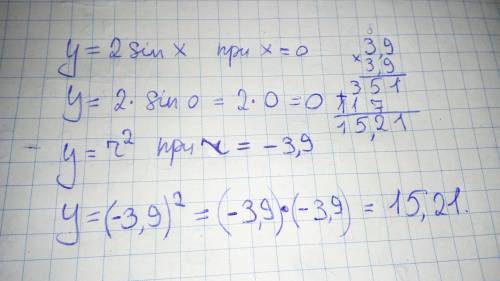 y = 2 sin x при x = 0
y = 2 · sin 0 = 2 · 0 = 0
y = r² при r = -3,9
y = (-3,9)² = (-3,9)·(-3,9) = 15,21.
3,9
× 3,9
351
+ 117
15,21